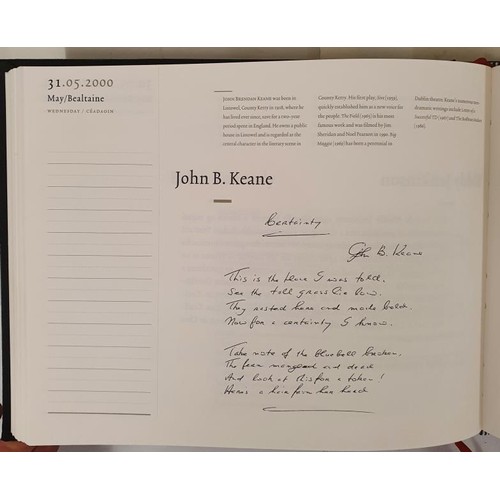 31.05.2000
May/Bealtaine
WEDNESDAY / CÉADAOIN
JOHN BRENDAN KEANE was born in
Listowel, County Kerry in 1928, where he
has lived ever since, save for a two-year
period spent in England. He owns a public
house in Listowel and is regarded as the
central character in the literary scene in
County Kerry. His first play, Sive (1959),
quickly established him as a new voice for
the people. The Field (1965) is his most
famous work and was filmed by Jim
Sheridan and Noel Pearson in 1990. Big
Maggie (1969) has been a perennial in
Dublin theatres. Keane's numerous non-
dramatic writings include Letters of a
Successful TD (1967) and The Bodhran Makers
(1986).
John B. Keane
Certainty
John B. Keane
This is the place I was told.
See the tall grass lie low.
They rested here and made bold.
Now for a certainty I know.
Take note of the bluebell broken,
The fern and dead
And look at this for a token!
Here's a hair from her head